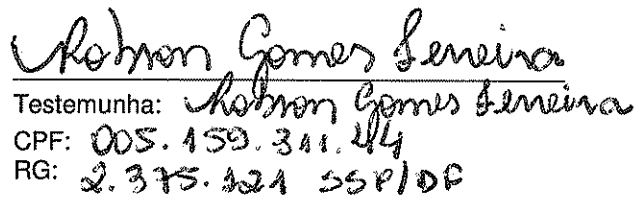 Robson Gomes Ferreira
Testemunha: Robson Gomes Ferreira
CPF: 005.159.311.44
RG: 2.375.121 SSP/DF